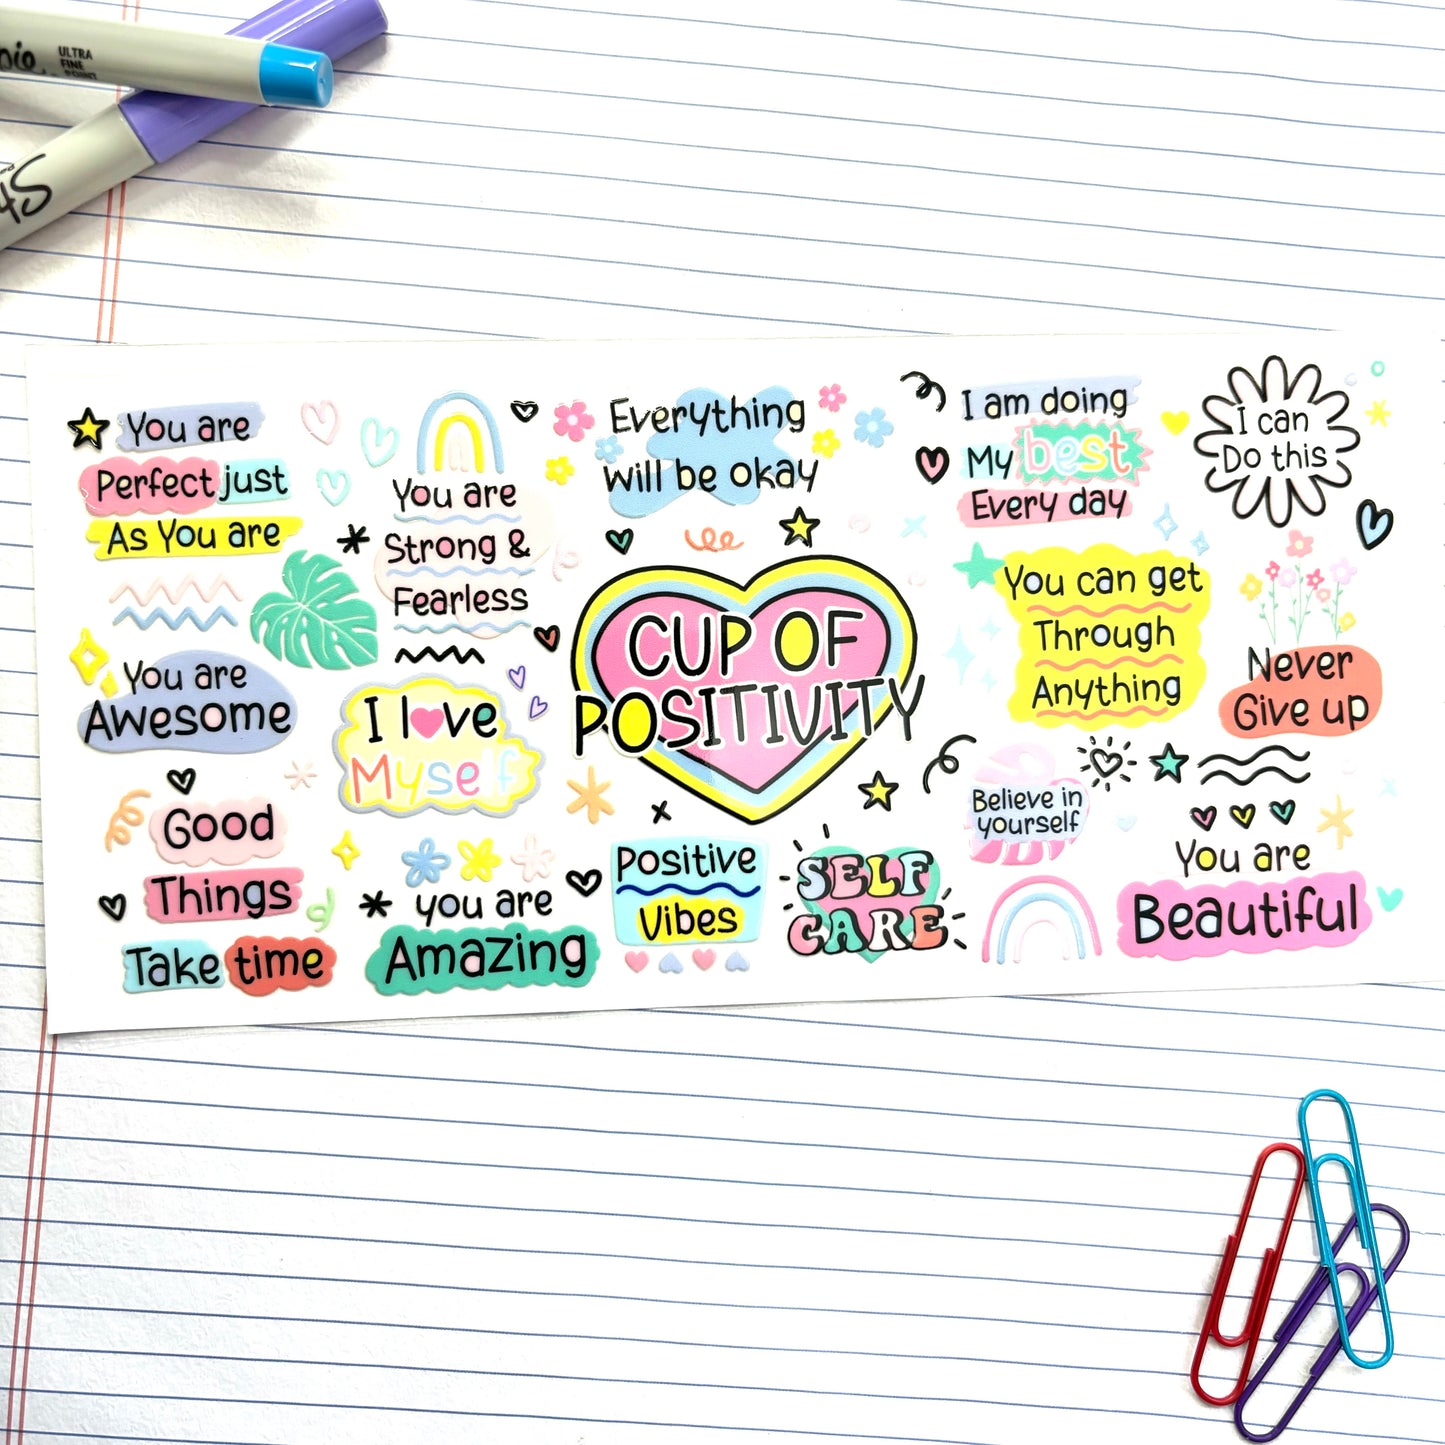 ULTRA
FINE
POINT
You are
Perfect just
As You are
You are
Strong &
Fearless
Everything
Will be okay
I am doing
My best
Every day
I can
Do this
CUP OF
POSITIVITY
You can get
Through
Anything
Never
Give up
You are
Awesome
I love
Myself
Good
Things
Take time
you are
Amazing
Positive
Vibes
SELF
CARE
Believe in
yourself
You are
Beautiful